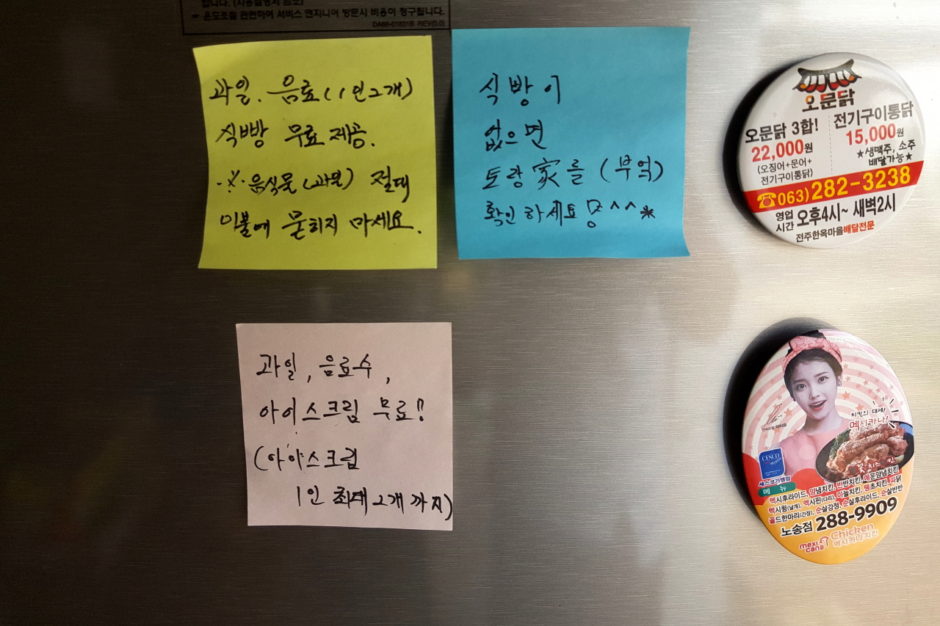 합니다. (사용설명서 참조)
온도조절 관련하여 서비스 엔지니어 방문시 비용이 청구됩니다.
과일. 음료(1인2개)
식빵 무료 제공.
※ 음식물(과일) 절대
이불에 묻히지 마세요.
식빵이
없으면
토랑家를 (부엌)
확인하세요 ^^*
과일, 음료수,
아이스크림 무료!!
(아이스크림
1인 최대 2개 까지)
오문닭
오문닭 3합!
22,000원
(오징어+문어+
전기구이통닭)
전기구이통닭
15,000원
★생맥주, 소주
배달가능★
☎063) 282-3238
영업시간 오후4시~ 새벽2시
전주한옥마을배달전문
CESCO
메뉴
노송점 288-9909
mexicana Chicken
멕시카나치킨